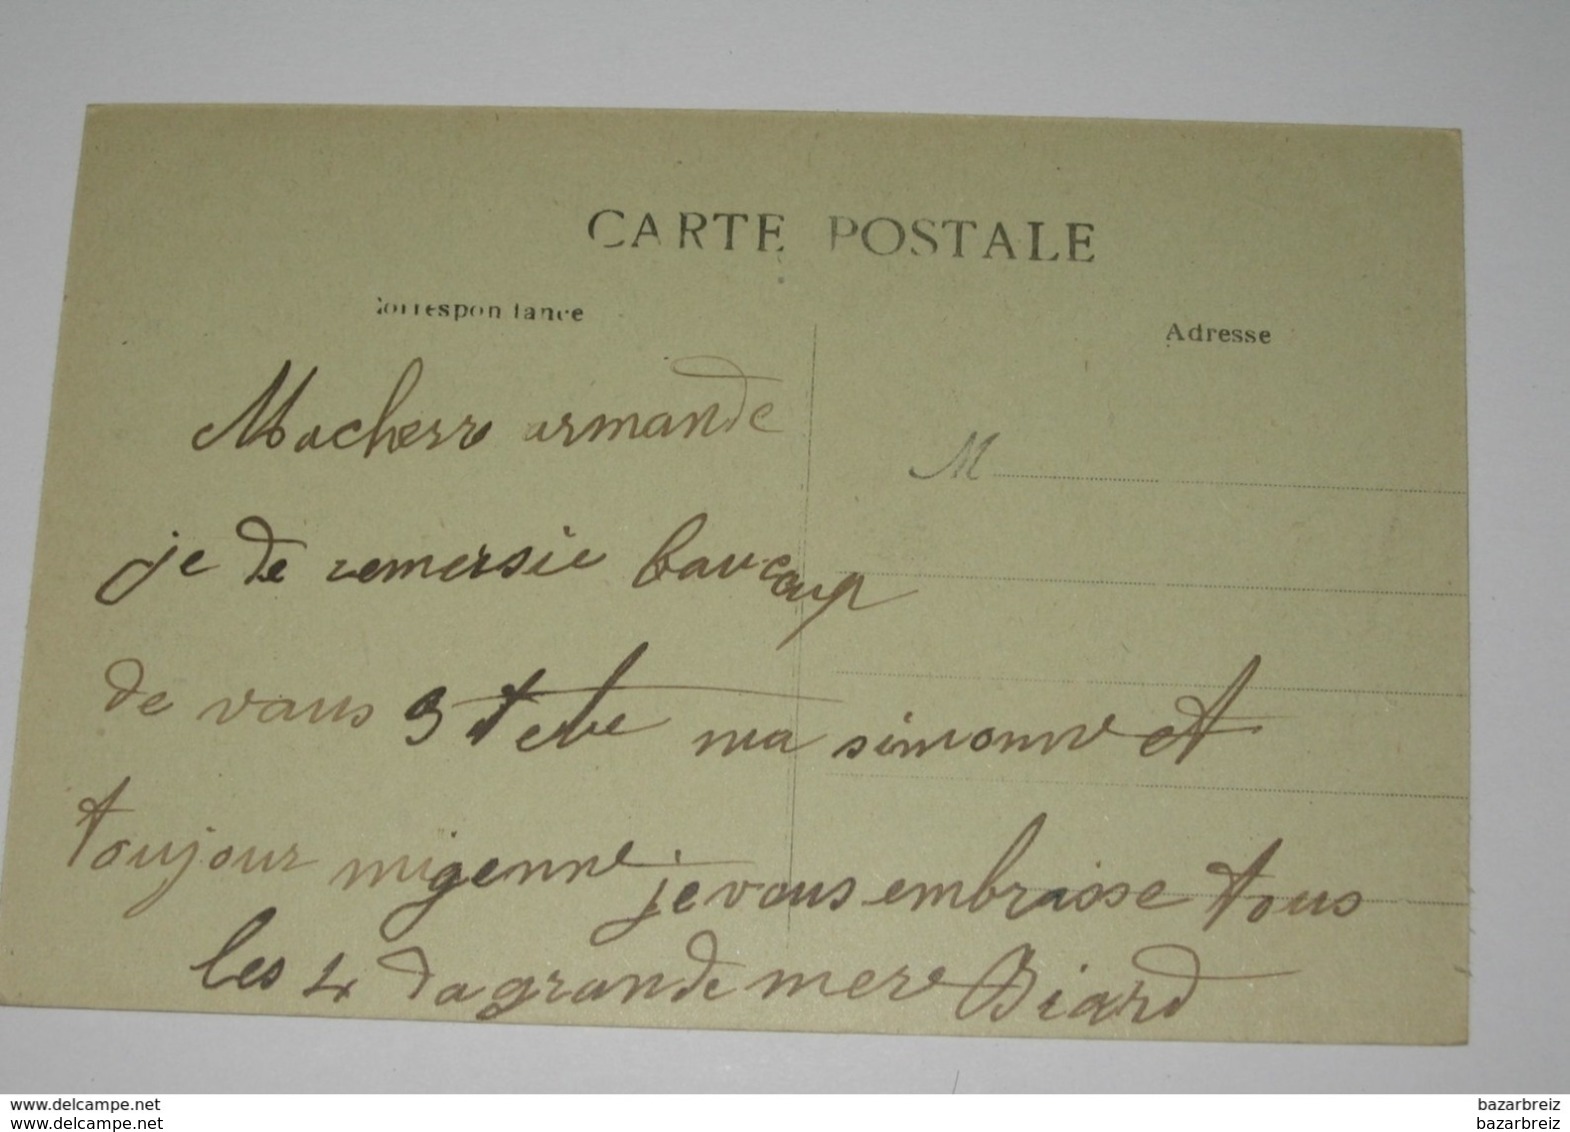 CARTE POSTALE
Correspondance
Adresse
Macherre armande
M
je de remersie baucoup
de vous 3 ma simonne et
toujour migenne je vous embrasse tous
les 4 Ta grande mere Biard
www.delcampe.net
www.delcampe.net
bazarbreiz
bazarbreiz